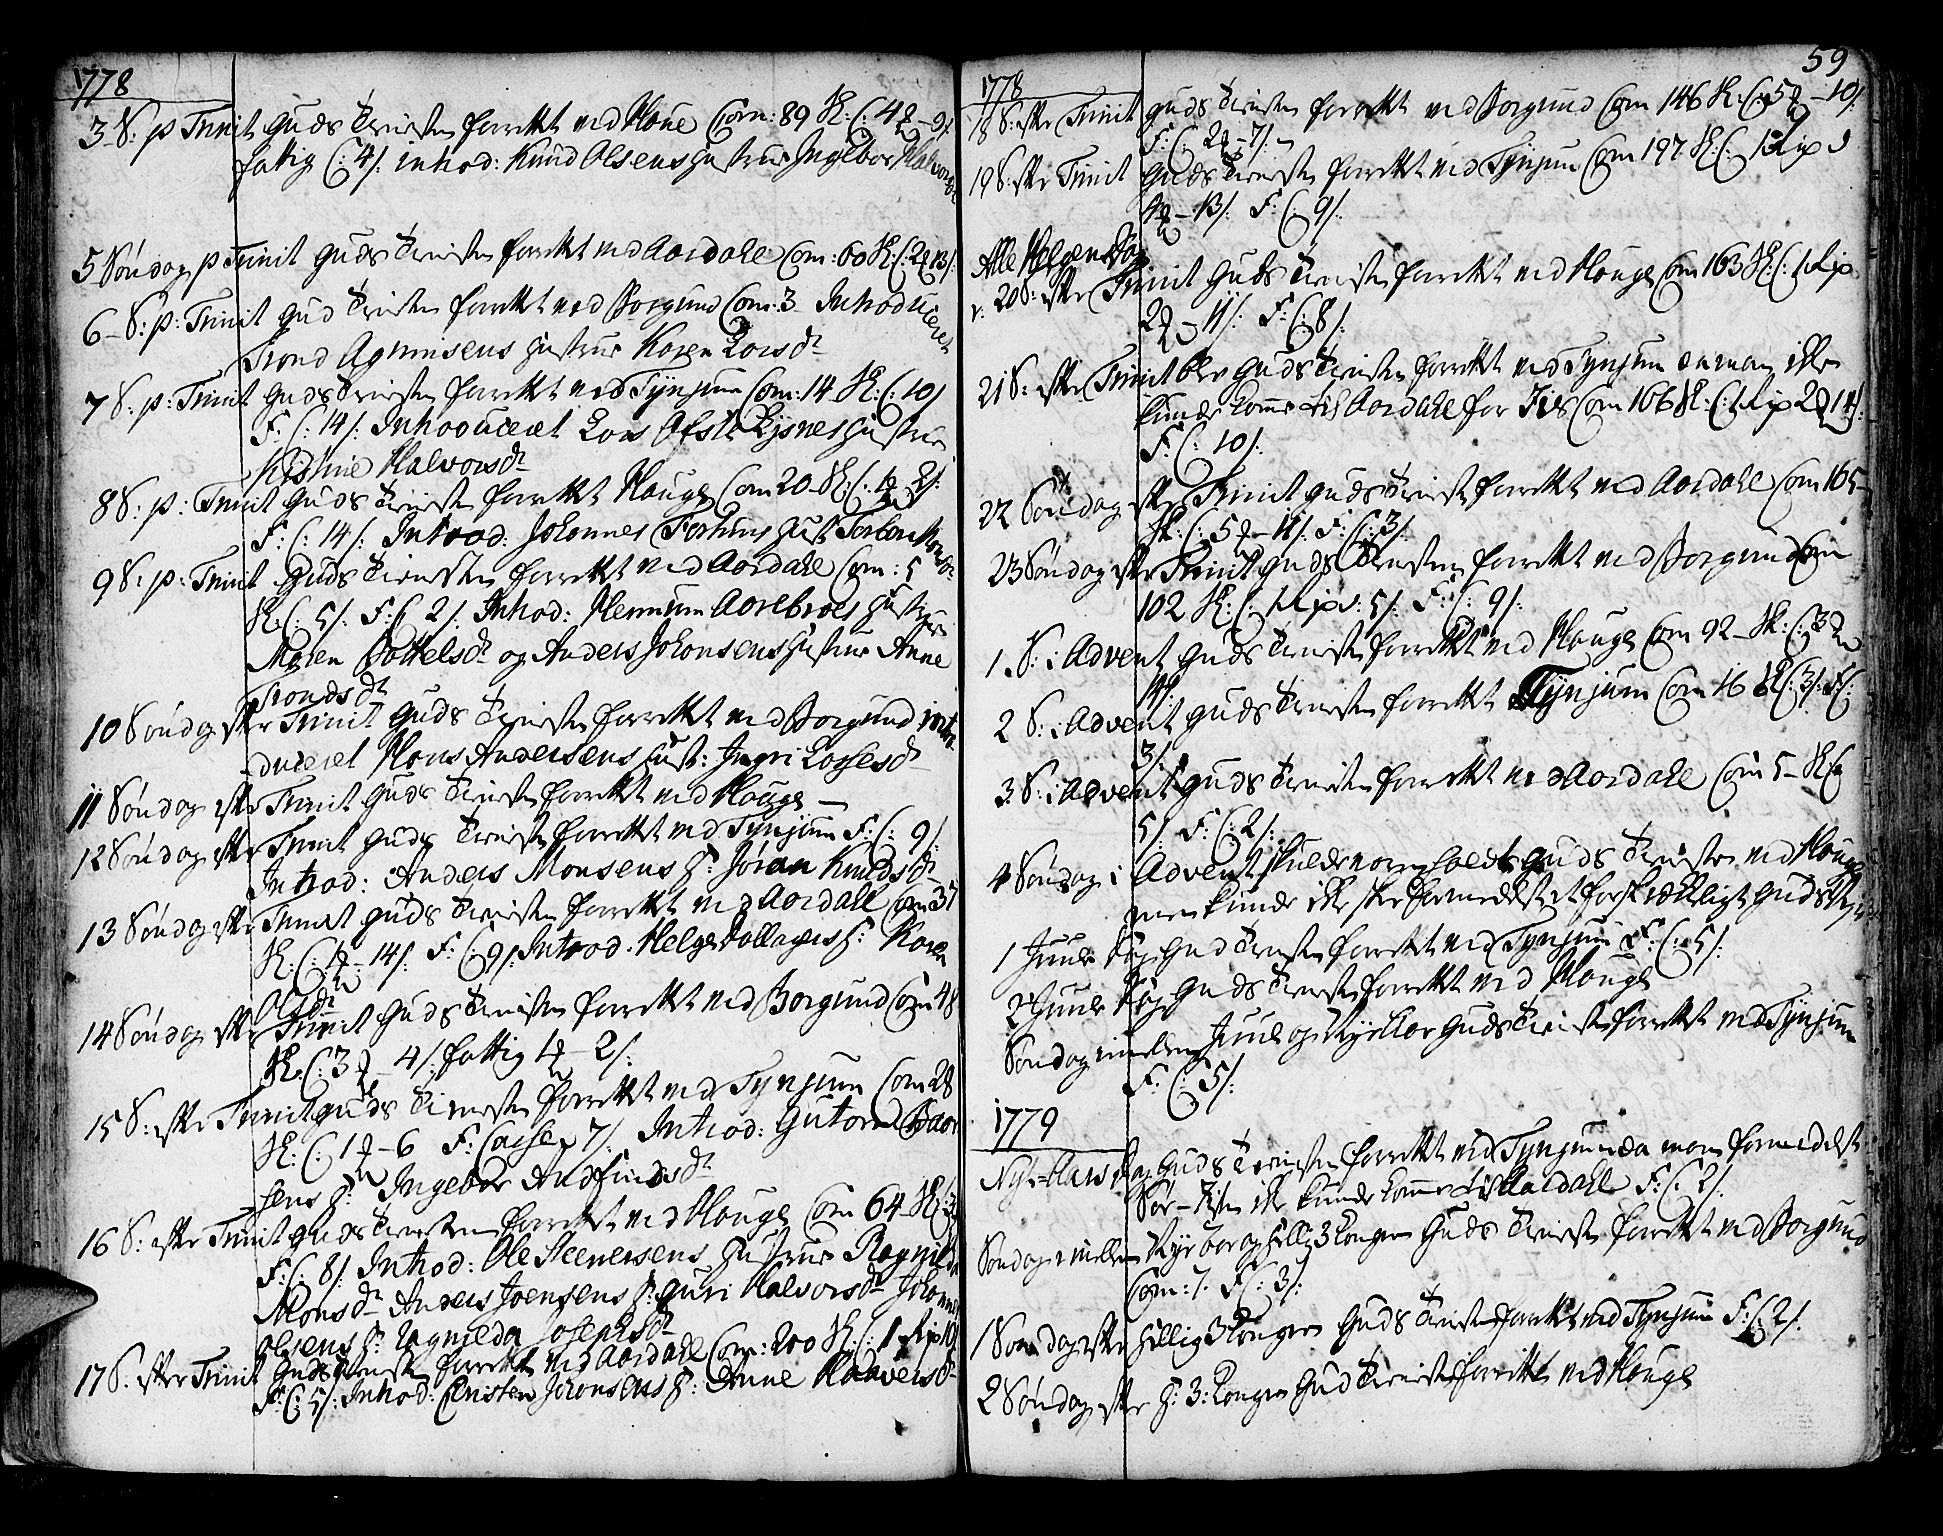 1778
3 S: p Trinit Guds Tienesten forrettet ved Houe Com: 89 K: C: 4 – 9/:
fattig C: 4/: introd: Knud Olsens Hustrue Ingebor Halvorsdr
5 Søndag p Trinit Guds Tienesten forrettet ved Aordahl Com: 60 K: C: 2 13/:
6 S: p: Trinit Gud Tienesten forrettet ved Borgund Com: 3 Introduceret
Trond Agrimsens Hustrue Karen Larsdr
7 S: p: Trinit Guds Tienesten forrettet ved Tynjum Com: 14 K: C: 10/
F: C: 14/: Introduceret Lars Lysnes Hustrue
Kistine Halvorsdr
8 S: p: Trinit Guds Tienesten forrettet Houge Com 20 K: C: 1 – 2/:
F: C: 14/: Introd: Johannes Hust
9 S: p: Trinit Guds Tienesten forrettet ved Aordahl Com: 5
K: C: 5/: F: C 2/: Introd: Hermum Hustrue
Maren Bottelsdr og Anders Johansens Hustrue Anne
Trondsdr
10 Søndag efter Trinit Guds Tienesten forrettet ved Borgund intro
duceret Hans Andersens Hust: Ingri
11 Søndag efter Trinit Guds Tienesten forrettet ved Houge –
12 Søndag efter Trinit Guds Tienesten forrettet ved Tynjum F: C: 9/:
Introd: Anders Monsens H: Jøran Knudsdr
13 Søndag efter Trinit Guds Tienesten forrettet ved Aordahl Com 37
K: C: 1 – 14/: F: C: 9/: Introd: Helge H: Karen
Olsdr
14 Søndag efter Trinit Guds Tienesten forrettet ved Borgund Com 48
K: C: 3 – 4/: fattig 1 – 2/:
15 S: efter Trinit Guds Tienesten forrettet ved Tynjum Com 28
K: C: 1 – 6 F: Casse 7/: Introd: Gutorm Baor
sens H: Ingebor Andfindsdr
16 S: efter Trinit Guds Tienesten forrettet ved Houge Com 64 K: 3
F: C: 8/: Introd: Ole Steenersens Hustrue Ragnilda
Monsdr Anders Joensens H: Guri Halvorsdr Johanne
Olsens H: Ragnjelda Josephsdr
17 S: efter Trinit Guds Tienesten forrettet ved Aordahl Com: 200 K: C: 1 Rix 10/
F: C: 5/: Introd: Cristen Joronsens H: Anne Halvorsdr
59
1778
18 S: efter Trinit Guds Tienesten forrettet ved Borgund Com 146 K: C: 5 – 10/:
F: C: 2 – 7/:
19 S: efter Trinit Guds Tienesten forrettet ved Tynjum Com 197 K: C: 1 Rixd
4 – 13/: F: C: 9/:
Alle Helgens Dag
20 S: efter Trinit Guds Tienesten forrettet ved Houge Com 163 K: C: 1 Rix
2 – 11/: F: C: 8/:
21 S: efter Trinit blev Guds Tienesten forrettet ved Tynjum da man ikke
kunde komme til Aordahl for Iis Com 166 K: C: 1 Rix 2 14/:
F: C: 10/:
22 Søndag efter Trinit Guds Tienesten forrettet ved Aordahl Com 165
K: C: 5 – 11/: F: C: 3/:
23 Søndag efter Trinit Guds Tienesten forrettet ved Borgund Com
102 K: C: 1 Rixd: 5/: F: C: 9/:
1 S: i Advent Guds Tienesten forrettet ved Houge Com 92 K: C: 3
14/:
2 S: i Advent Guds Tienesten forrettet Tynjum Com 16 K: C: 3/: F: C:
3/:
3 S: i Advent Guds Tienesten forrettet ved Aordahl Com 5 K: C:
5/: F: C: 2/:
4 Søndag i Advent skulde være holdt Guds Tienesten ved Houge
men kunde ikke skee formedelst et forskrækkeligt
1 Juule Dag Gud Tienesten forrettet ved Tynjum F: C: 5/:
2 Juule Dag Guds Tienesten forrettet ved Houge
Søndag imellem Juul og Nyt Aor Guds Tienesten forrettet ved Tynjum
F: C: 5/:
1779
Nyt-Aars Dag Guds Tienesten forrettet ved Tynjum da man formedelst
Sør-Iisen ikke kunde komme til Aordahl F: C: 2/:
Søndag imellem Nyt aar og Hellig 3 Konger Guds Tienesten forrettet ved Borgund
Com: 7. F: C: 3/:
1 Søndag efter Hellig 3 Konger Guds Tienesten forrettet ved Tynjum F: C: 2/:
2 Søndag efter H: 3: Konger Gud Tienesten forrettet ved Houge